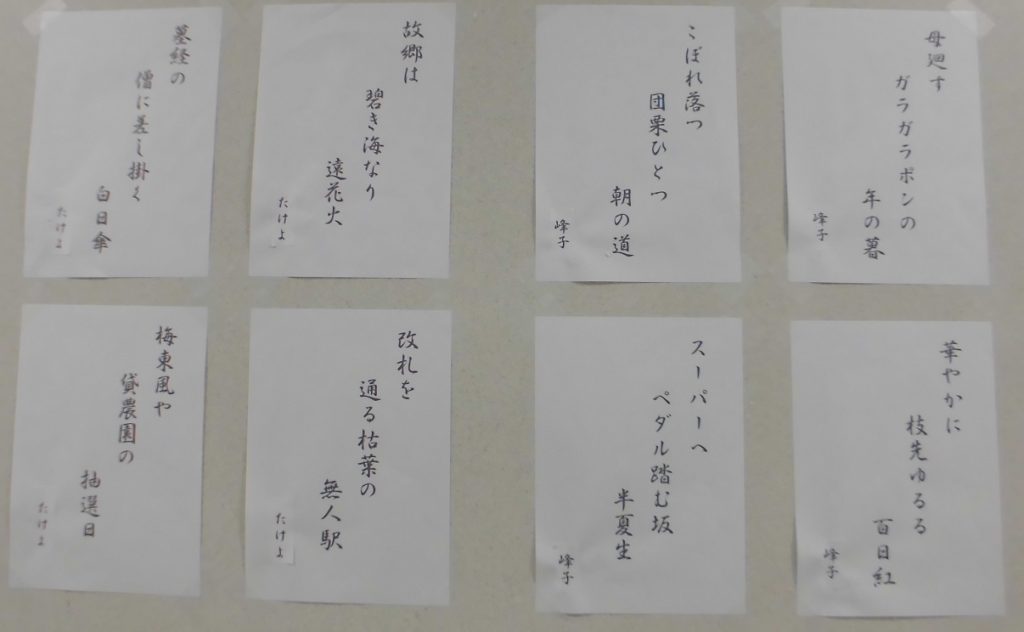 母廻す
ガラガラポンの
年の暮
峰子
こぼれ落つ
団栗ひとつ
朝の道
峰子
故郷は
碧き海なり
遠花火
たけよ
墓経の
僧に差し掛く
白日傘
たけよ
華やかに
枝先ゆるる
百日紅
峰子
スーパーへ
ペダル踏む坂
半夏生
峰子
改札を
通る枯葉の
無人駅
たけよ
梅東風や
貸農園の
抽選日
たけよ